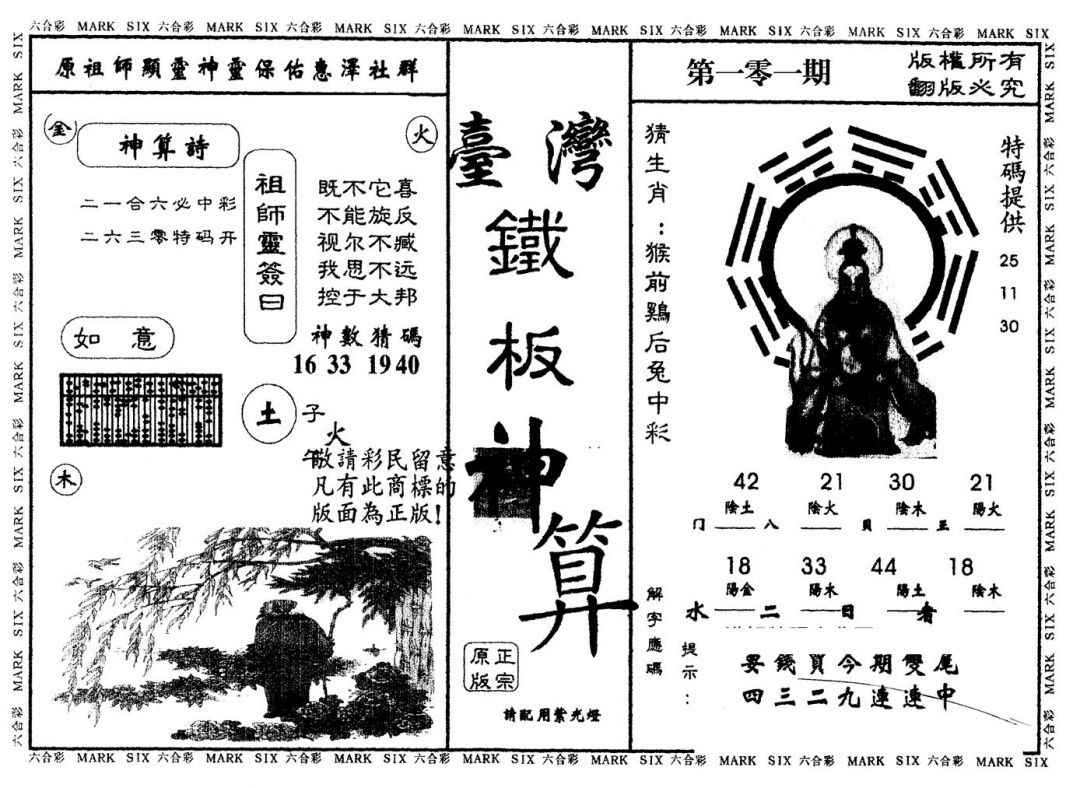 六合彩 MARK SIX 六合彩 MARK SIX 六合彩 MARK SIX 六合彩 MARK SIX 六合彩 MARK SIX 六合彩 MARK SIX 六合彩 MARK SIX 六合彩 MARK SIX
原祖師顯靈神靈保佑惠澤社群
金
神算詩
火
二一合六必中彩
二六三零特码开
祖師靈簽曰
既不它喜
不能旋反
视尔不臧
我思不远
控于大邦
神數猜碼
16 33 19 40
如意
土
子
火
午
木
敬請彩民留意
凡有此商標的
版面為正版!
臺灣
鐵
板
神
算
正宗
原版
請配用紫光燈
第一零一期
版權所有
翻版必究
猜生肖:猴前鷄后兔中彩
特碼提供
25
11
30
42 21 30 21
陰土 陰火 陰木 陽火
门 八 貝 五
18 33 44 18
陽金 陽木 陽土 陰木
水 二 日 者
解字應碼
提示:
要錢買今期雙尾
四三二九連連中
六合彩 MARK SIX 六合彩 MARK SIX 六合彩 MARK SIX 六合彩 MARK SIX 六合彩 MARK SIX 六合彩 MARK SIX 六合彩 MARK SIX 六合彩 MARK SIX